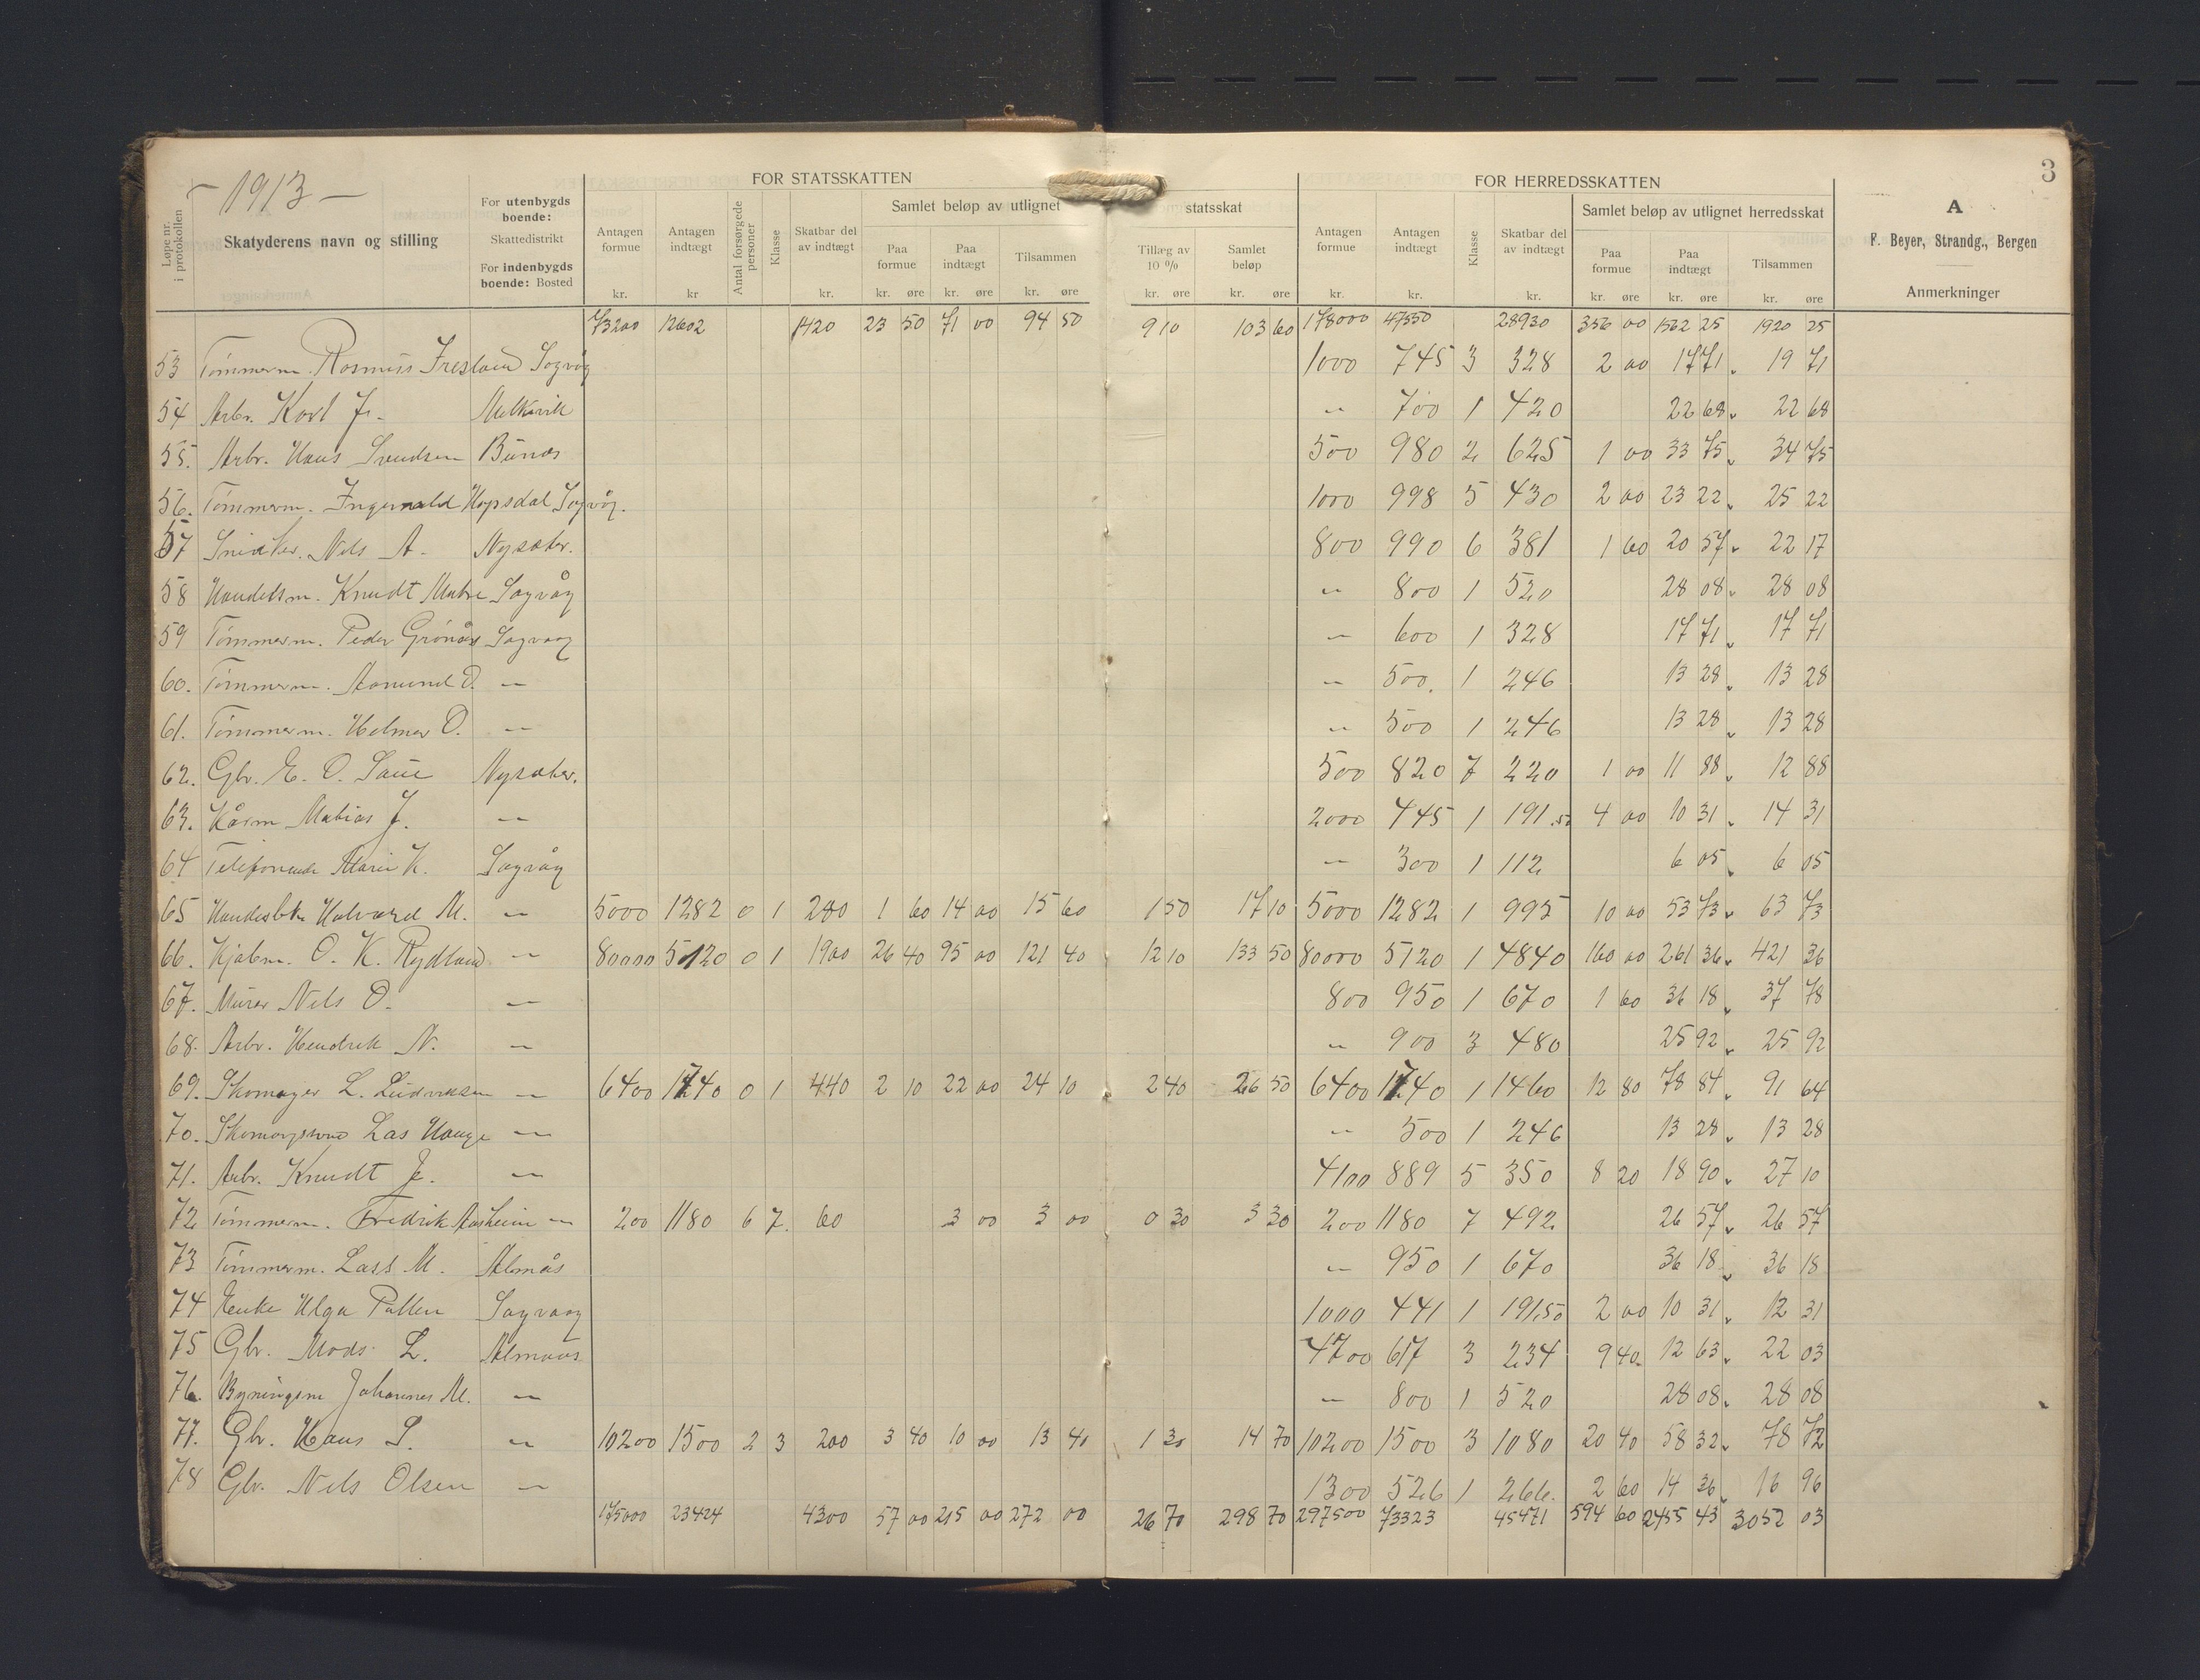 3
- 1913 -
FOR STATSSKATTEN
FOR HERREDSSKATTEN
Løpe nr. i protokollen
Skatyderens navn og stilling
For utenbygds boende:
Skattedistrikt
For indenbygds boende: Bosted
Antagen formue kr.
Antagen indtægt kr
Antal forsørgede personer
Klasse
Skatbar del av indtægt kr.
Samlet beløp av utlignet statsskat
Paa formue kr. øre
Paa indtægt kr. øre
Tilsammen kr. øre
Tillæg av 10 % kr. øre
Samlet beløp kr. øre
Antagen formue kr.
Antagen indtægt kr.
Klasse
Skatbar del av indtægt kr.
Samlet beløp av utlignet herredsskat
Paa formue kr. øre
Paa indtægt kr. øre
Tilsammen kr. øre
A
F. Beyer, Strandg., Bergen
Anmerkninger
73200 12602 1420 23 50 71 00 94 50 9 10 103 60 178000 47550 28930 356 00 1562 25 1920 25
53 Tømmerm. Rasmus Sagvåg 1000 745 3 328 2 00 17 71 19 71
54 Arbr. Karl J. 〃 700 1 420 22 68 22 68
55. Arbr. Hans Svendsen Bünes 500 980 2 625 1 00 33 75 34 75
56. Tømmerm. Ingemald Hopsdal Sagvåg. 1000 998 5 430 2 00 23 22 25 22
57 Snidker. Nels A. Nysæter. 800 990 6 381 1 60 20 57 22 17
58 Handelsm. Knudt Matre Sagvåg 〃 800 1 520 28 08 28 08
59 Tømmerm. Peder Grönås Sagvaag 〃 600 1 328 17 71 17 71
60. Tømmerm. Aamund O. 〃 〃 500. 1 246 13 28 13 28
61. Tømmerm. Helmer O. 〃 〃 500 1 246 13 28 13 28
62. Gbr. E. O. Saue Nysæter. 500 820 7 220 1 00 11 88 12 88
63. Kårm Matias J. 〃 2000 445 1 191.50 4 00 10 31 14 31
64 Marie K. Sagvåg 〃 300 1 112 6 05 6 05
65 Halvard M. 〃 5000 1282 0 1 280 1 60 14 00 15 60 1 50 17 10 5000 1282 1 995 10 00 53 73 63 73
66. Kjøbm. O. K. Rydland 〃 80000 5120 0 1 1900 26 40 95 00 121 40 12 10 133 50 80000 5120 1 4840 160 00 261 36 421 36
67. Mürer Nels O. 〃 800 950 1 670 1 60 36 18 37 78
68. Arbr. Hendrik N. 〃 〃 900 3 480 25 92 25 92
69. Skomager L. Ludviksen 〃 6400 1740 0 1 440 2 10 22 00 24 10 2 40 26 50 6400 1740 1 1460 12 80 78 84 91 64
70. Las Hauge 〃 〃 500 1 246 13 28 13 28
71. Arbr. Knudt J. 〃 4100 889 5 350 8 20 18 90 27 10
72 Tømmerm. Fredrik Aasheim 〃 200 1180 6 7. 60 3 00 3 00 0 30 3 30 200 1180 7 492 26 57 26 57
73 Tømmerm. Lass M. Almås 〃 950 1 670 36 18 36 18
74 Enke Helga Pallen Sagvaag 1000 441 1 191.50 2 00 10 31 12 31
75 Gbr. Mads L. Almaas 4700 617 3 234 9 40 12 63 22 03
76. Bygningsm Johannes M. 〃 〃 800 1 520 28 08 28 08
77. Gbr. Hans L. 〃 10200 1500 2 3 200 3 40 10 00 13 40 1 30 14 70 10200 1500 3 1080 20 40 58 32 78 72
78 Gbr. Nels Olsen 〃 1300 526 1 266. 2 60 14 36 16 96
175000 23424 4300 57 00 215 00 272 00 26 70 298 70 297500 73323 45471 594 60 2455 43 3052 03